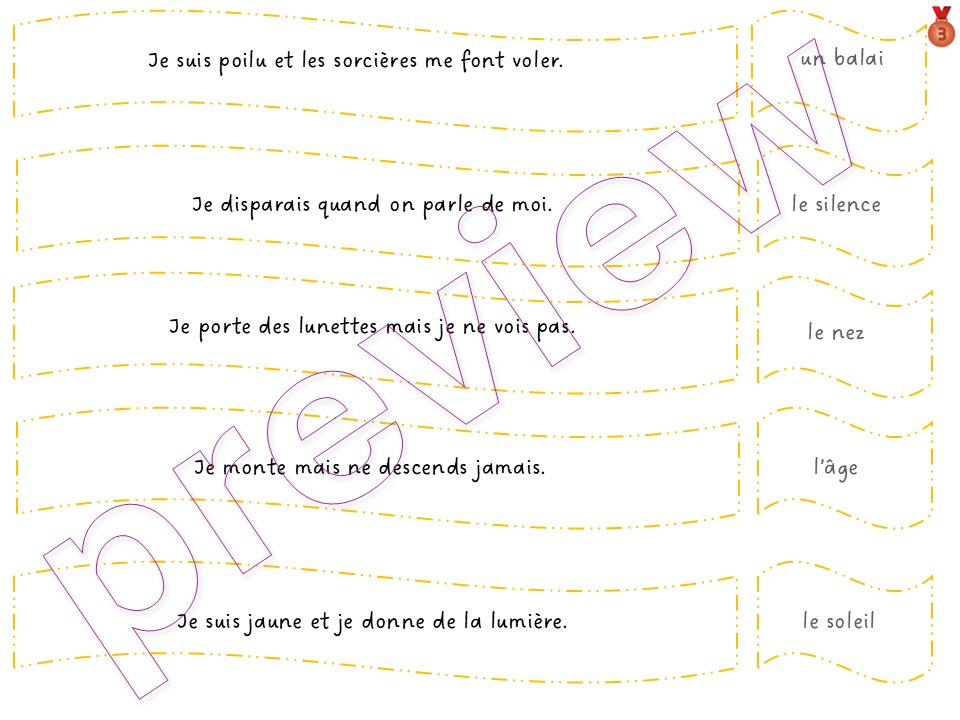 Je suis poilu et les sorcières me font voler.
un balai
3
Je disparais quand on parle de moi.
le silence
Je porte des lunettes mais je ne vois pas.
le nez
Je monte mais ne descends jamais.
l'âge
Je suis jaune et je donne de la lumière.
le soleil
preview